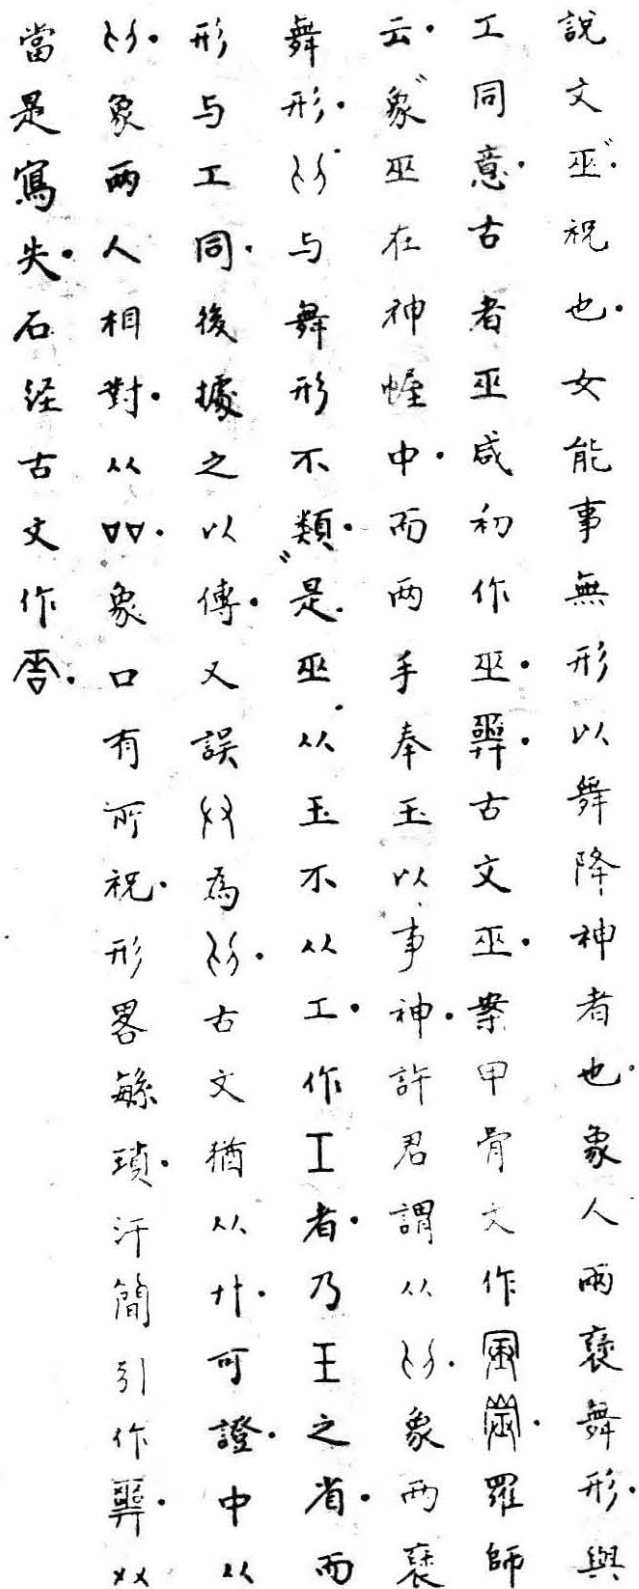 說文巫祝也女能事無形以舞降神者也象人兩褎舞形與
工同意古者巫咸初作巫古文巫案甲骨文作羅師
云象巫在神幄中而兩手奉玉以事神許君謂从象兩褎
舞形与舞形不類是巫从玉不从工作工者乃王之省而
形与工同後據之以傳又誤為古文猶从廾可證中从
象兩人相對从象口有所祝形畧緐瑣汗簡引作
當是寫失石経古文作